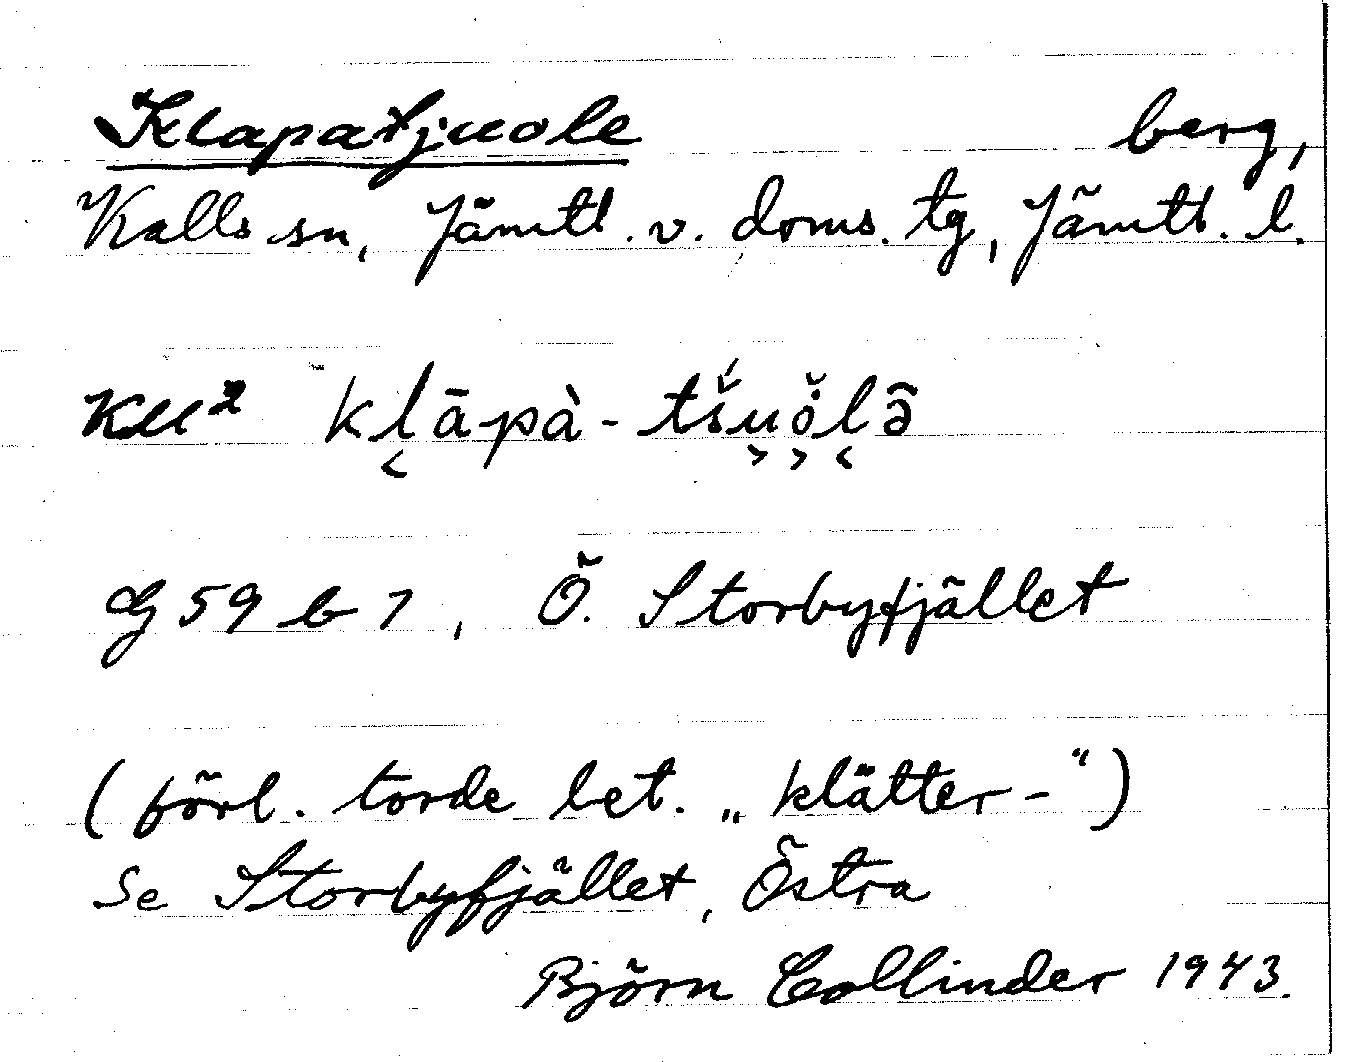 Klapatjuole berg,
Kalls sn, Jämtl. v. doms. tg, Jämtl. l.
KM² kl̬āpà-tš́u̬ŏ̇l̬ə̑
G 59 b 7, Ö. Storbyfjället
(förl. torde bet. „klätter-“)
Se Storbyfjället, Östra
Björn Collinder 1943.